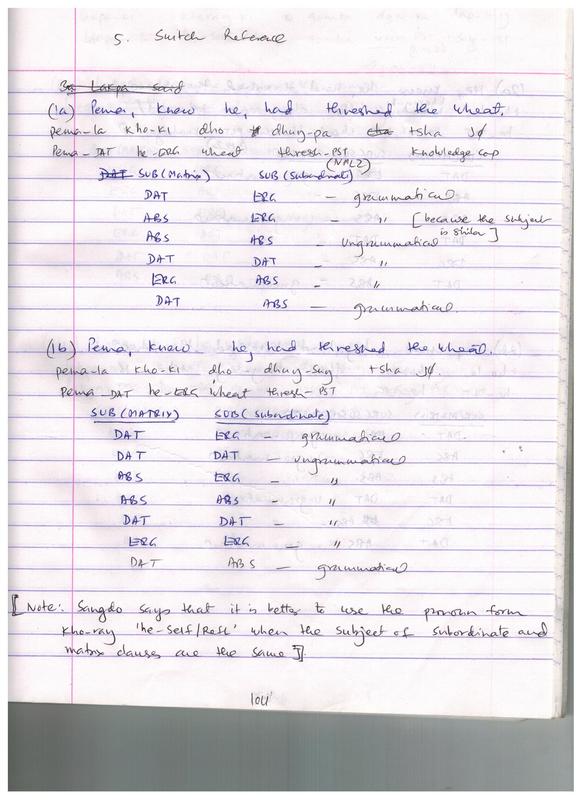 5. Switch Reference
3a Lakpa said
(1a) Pemaᵢ knew heᵢ had threshed the wheat.
pema-la kho-ki dho dhuŋ-pa tsha
Pema-DAT he-ERG wheat thresh-PST knowledge cop
(NMLZ)
DAT SUB(Matrix) SUB(Subordinate)
DAT ERG – grammatical
ABS ERG – " [because the subject is similar]
ABS ABS – Ungrammatical
DAT DAT – "
ERG ABS – "
DAT ABS – grammatical.
(1b) Pemaᵢ knew heⱼ had threshed the wheat.
pema-la kho-ki dho dhuŋ-suŋ tsha
Pema-DAT he-ERG wheat thresh-PST
SUB(MATRIX) SUB(Subordinate)
DAT ERG – grammatical
DAT DAT – ungrammatical
ABS ERG – "
ABS ABS – "
DAT DAT – "
ERG ERG – "
DAT ABS – grammatical
[Note: Sangdo says that it is better to use the pronoun form
kho-raŋ 'he-self/REFL' when the subject of subordinate and
matrix clauses are the same]